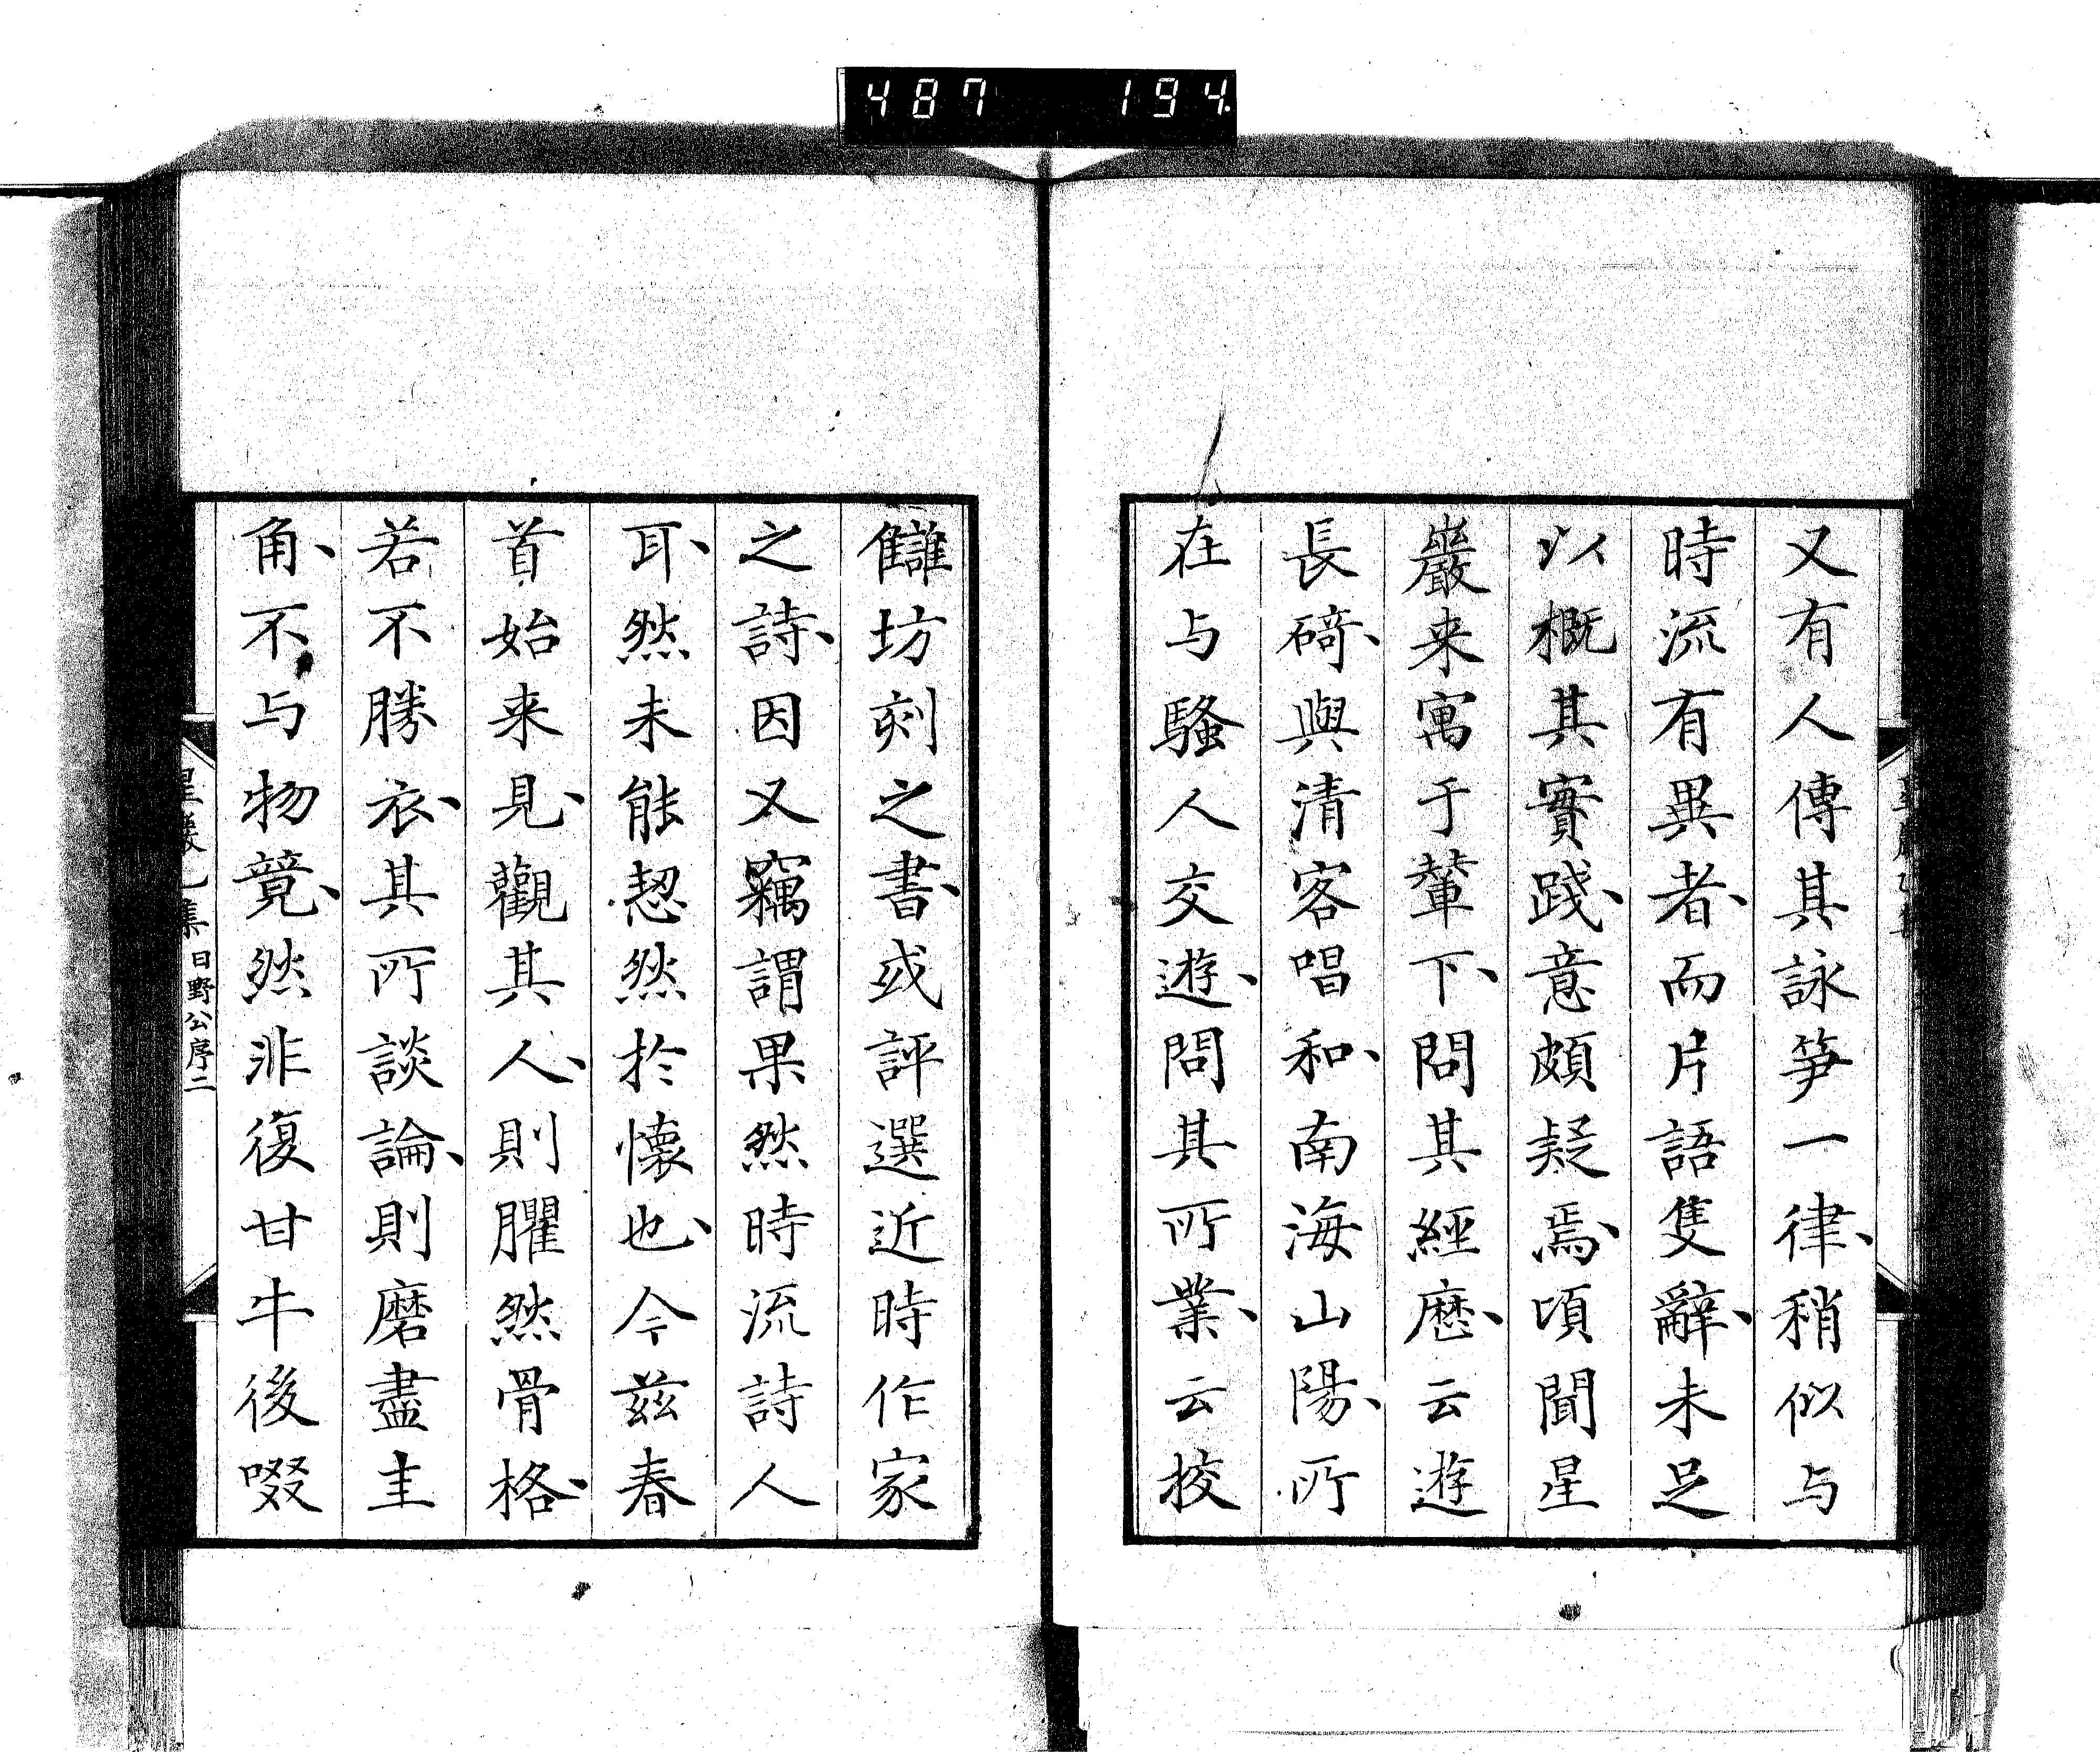 487 194
又有人傳其詠笋一律、稍似与
時流有異者、而片語隻辭、未足
以概其實踐、意頗疑焉、頃聞星
巖来寓于輦下、問其經歴、云遊
長碕、與清客唱和、南海山陽、所
在与騷人交遊、問其所業、云挍
讎坊刻之書、或評選近時作家
之詩、因又竊謂果然時流詩人
耳、然未能恝然於懷也、今茲春
首始来見、觀其人、則臞然骨格、
若不勝衣、其所談論、則磨盡圭
角、不与物競、然非復甘牛後啜
星巖乙集 日野公序二